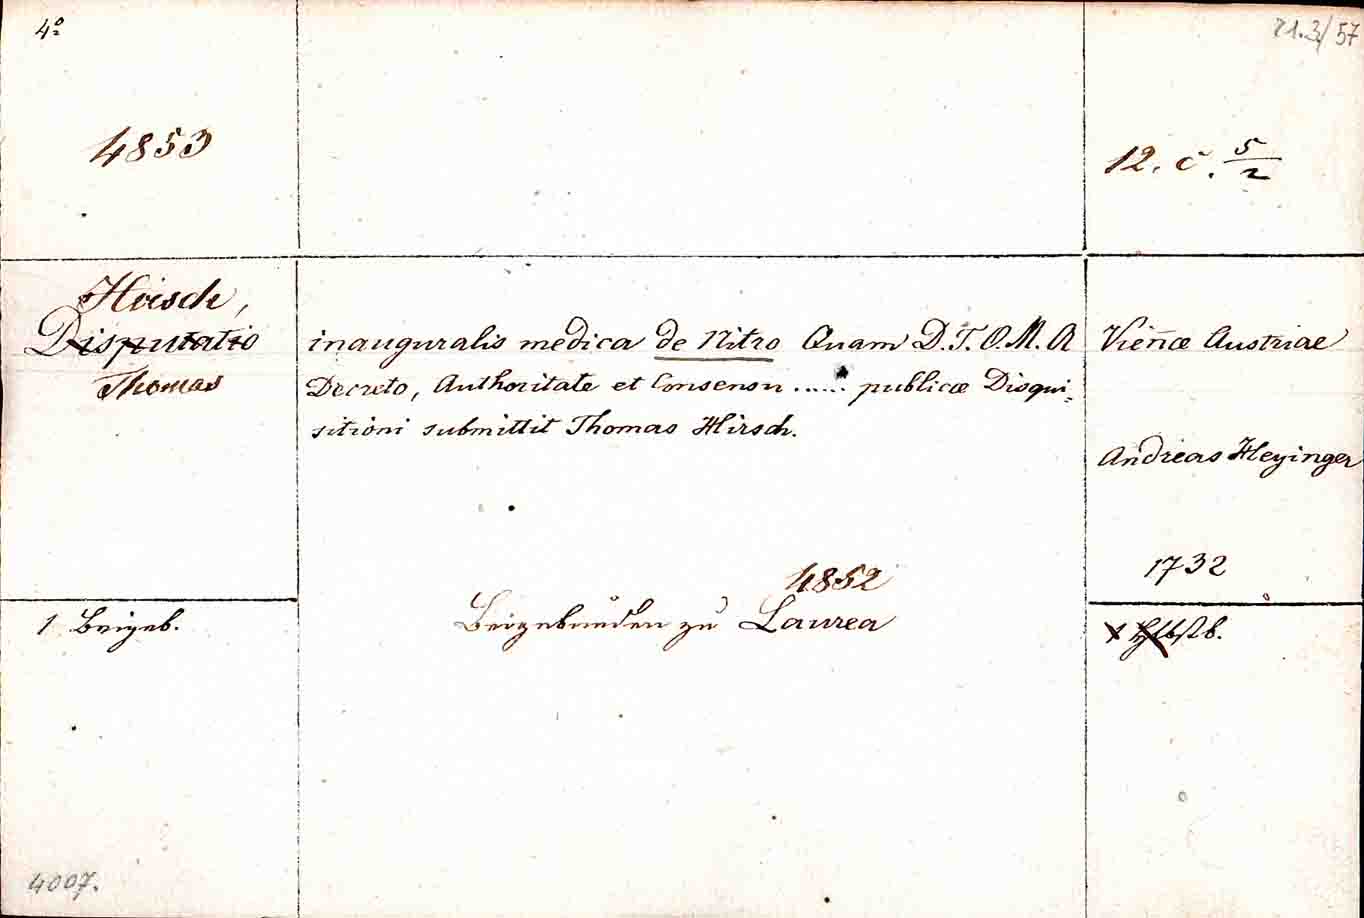 4º
21.3/57
4853
12. c. 5/2
Hirsch,
Disputatio
Thomas
inauguralis medica de Nitro Quam D.T.O.M.A
Decreto, Authoritate et Consensu ...... publicæ Disqui-
sitioni submittit Thomas Hirsch.
Vieñæ Austriae
Andreas Heyinger
1732
4852
Beigebunden zu Laurea
1 Beigeb.
1 Hlbfb.
4007.